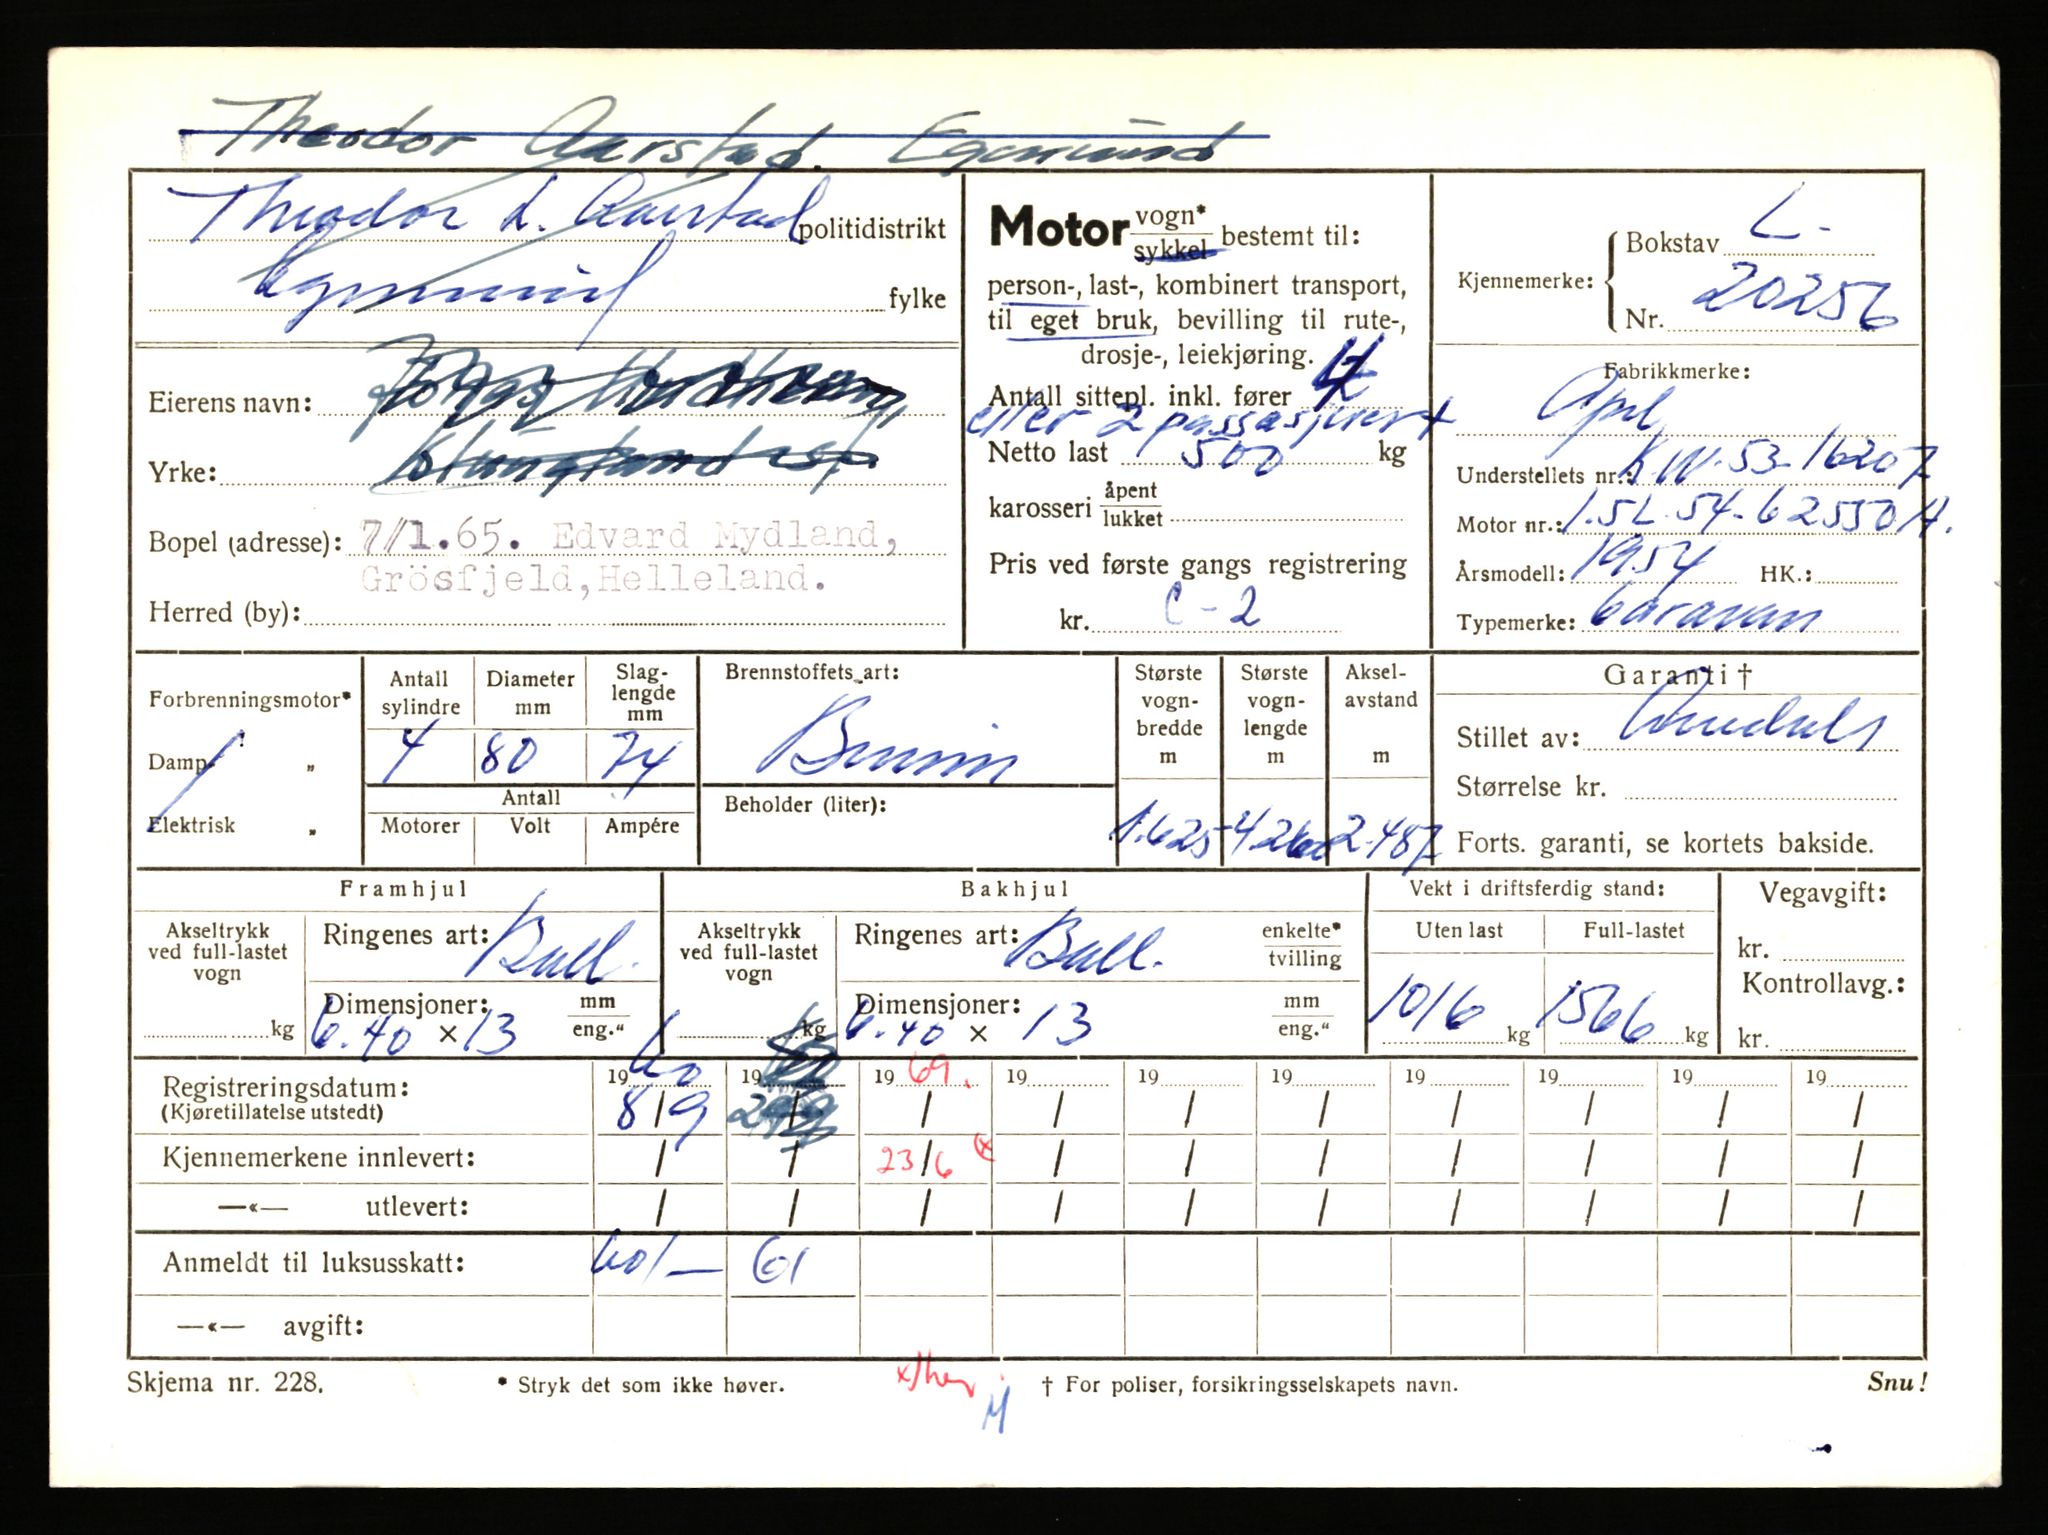 Theodor Aarstad. Egersund
Theodor L. Aarstad politidistrikt
Egersund fylke
Eierens navn:
Yrke:
Bopel (adresse): 7/1.65. Edvard Mydland,
Grösfjeld, Helleland.
Herred (by):
Motor vogn* sykkel bestemt til:
person-, last-, kombinert transport,
til eget bruk, bevilling til rute-,
drosje-, leiekjøring.
Antall sittepl. inkl. fører 4
eller 2 passasjerer +
Netto last 500 kg
karosseri åpent lukket
Pris ved første gangs registrering
kr. C-2
Kjennemerke: Bokstav L.
Nr. 20256
Fabrikkmerke:
Opel
Understellets nr.: K.W.53-16207
Motor nr.: 1.5L.54-62550 H.
Årsmodell: 1954 HK.:
Typemerke: Caravan
Forbrenningsmotor*
Damp „
Elektrisk „
Antall sylindre Diameter mm Slaglengde mm
4 80 74
Antall
Motorer Volt Ampére
Brennstoffets art:
Bensin
Beholder (liter):
Største vogn-bredde m Største vogn-lengde m Aksel-avstand m
1.625 4.260 2.487
Garanti †
Stillet av:
Størrelse kr.
Forts. garanti, se kortets bakside.
Framhjul
Akseltrykk ved full-lastet vogn
kg
Ringenes art: Ball.
Dimensjoner: mm eng."
6.40 × 13
Bakhjul
Akseltrykk ved full-lastet vogn
kg
Ringenes art: Ball. enkelte* tvilling
Dimensjoner: mm eng."
6.40 × 13
Vekt i driftsferdig stand:
Uten last Full-lastet
1016 kg 1566 kg
Vegavgift:
kr.
Kontrollavg.:
kr.
Registreringsdatum: 19 60 19 19 69. 19 19 19 19 19 19 19
(Kjøretillatelse utstedt) 8/9 / / / / / / / /
Kjennemerkene innlevert: / / 23/6 x / / / / / / /
—«— utlevert: / / / / / / / / / /
Anmeldt til luksusskatt: 60/— 61
—«— avgift:
Skjema nr. 228. * Stryk det som ikke høver. x/her. M † For poliser, forsikringsselskapets navn. Snu!